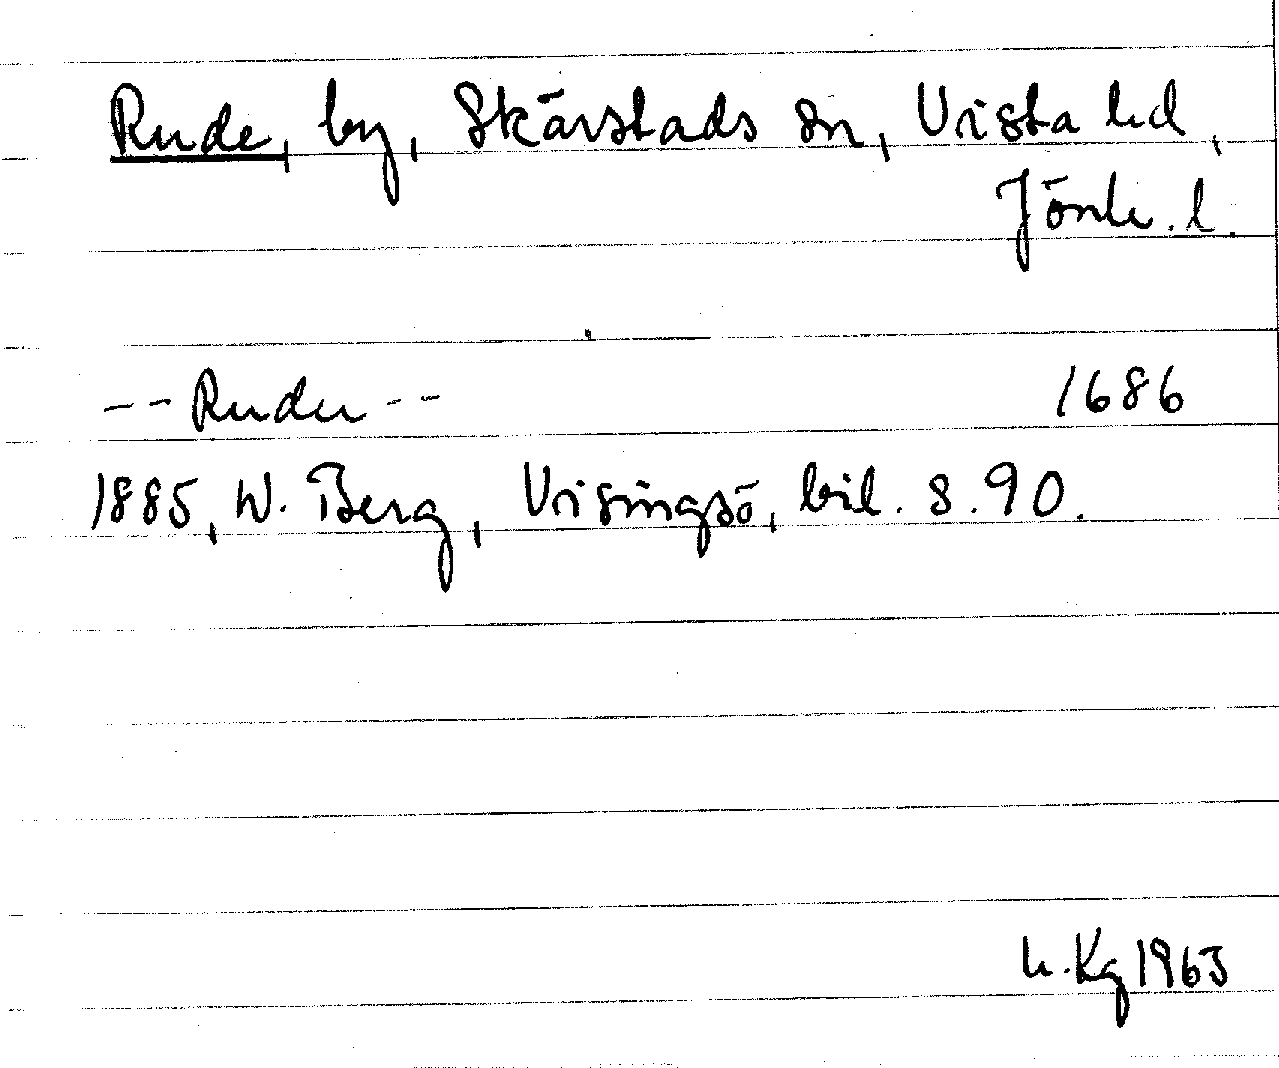 Rude, by, Skärstads sn, Vista hd,
Jönk. l.
-- Ruder -- 1686
1885, W. Berg, Visingsö, bil. s. 90.
h. Kg 1963